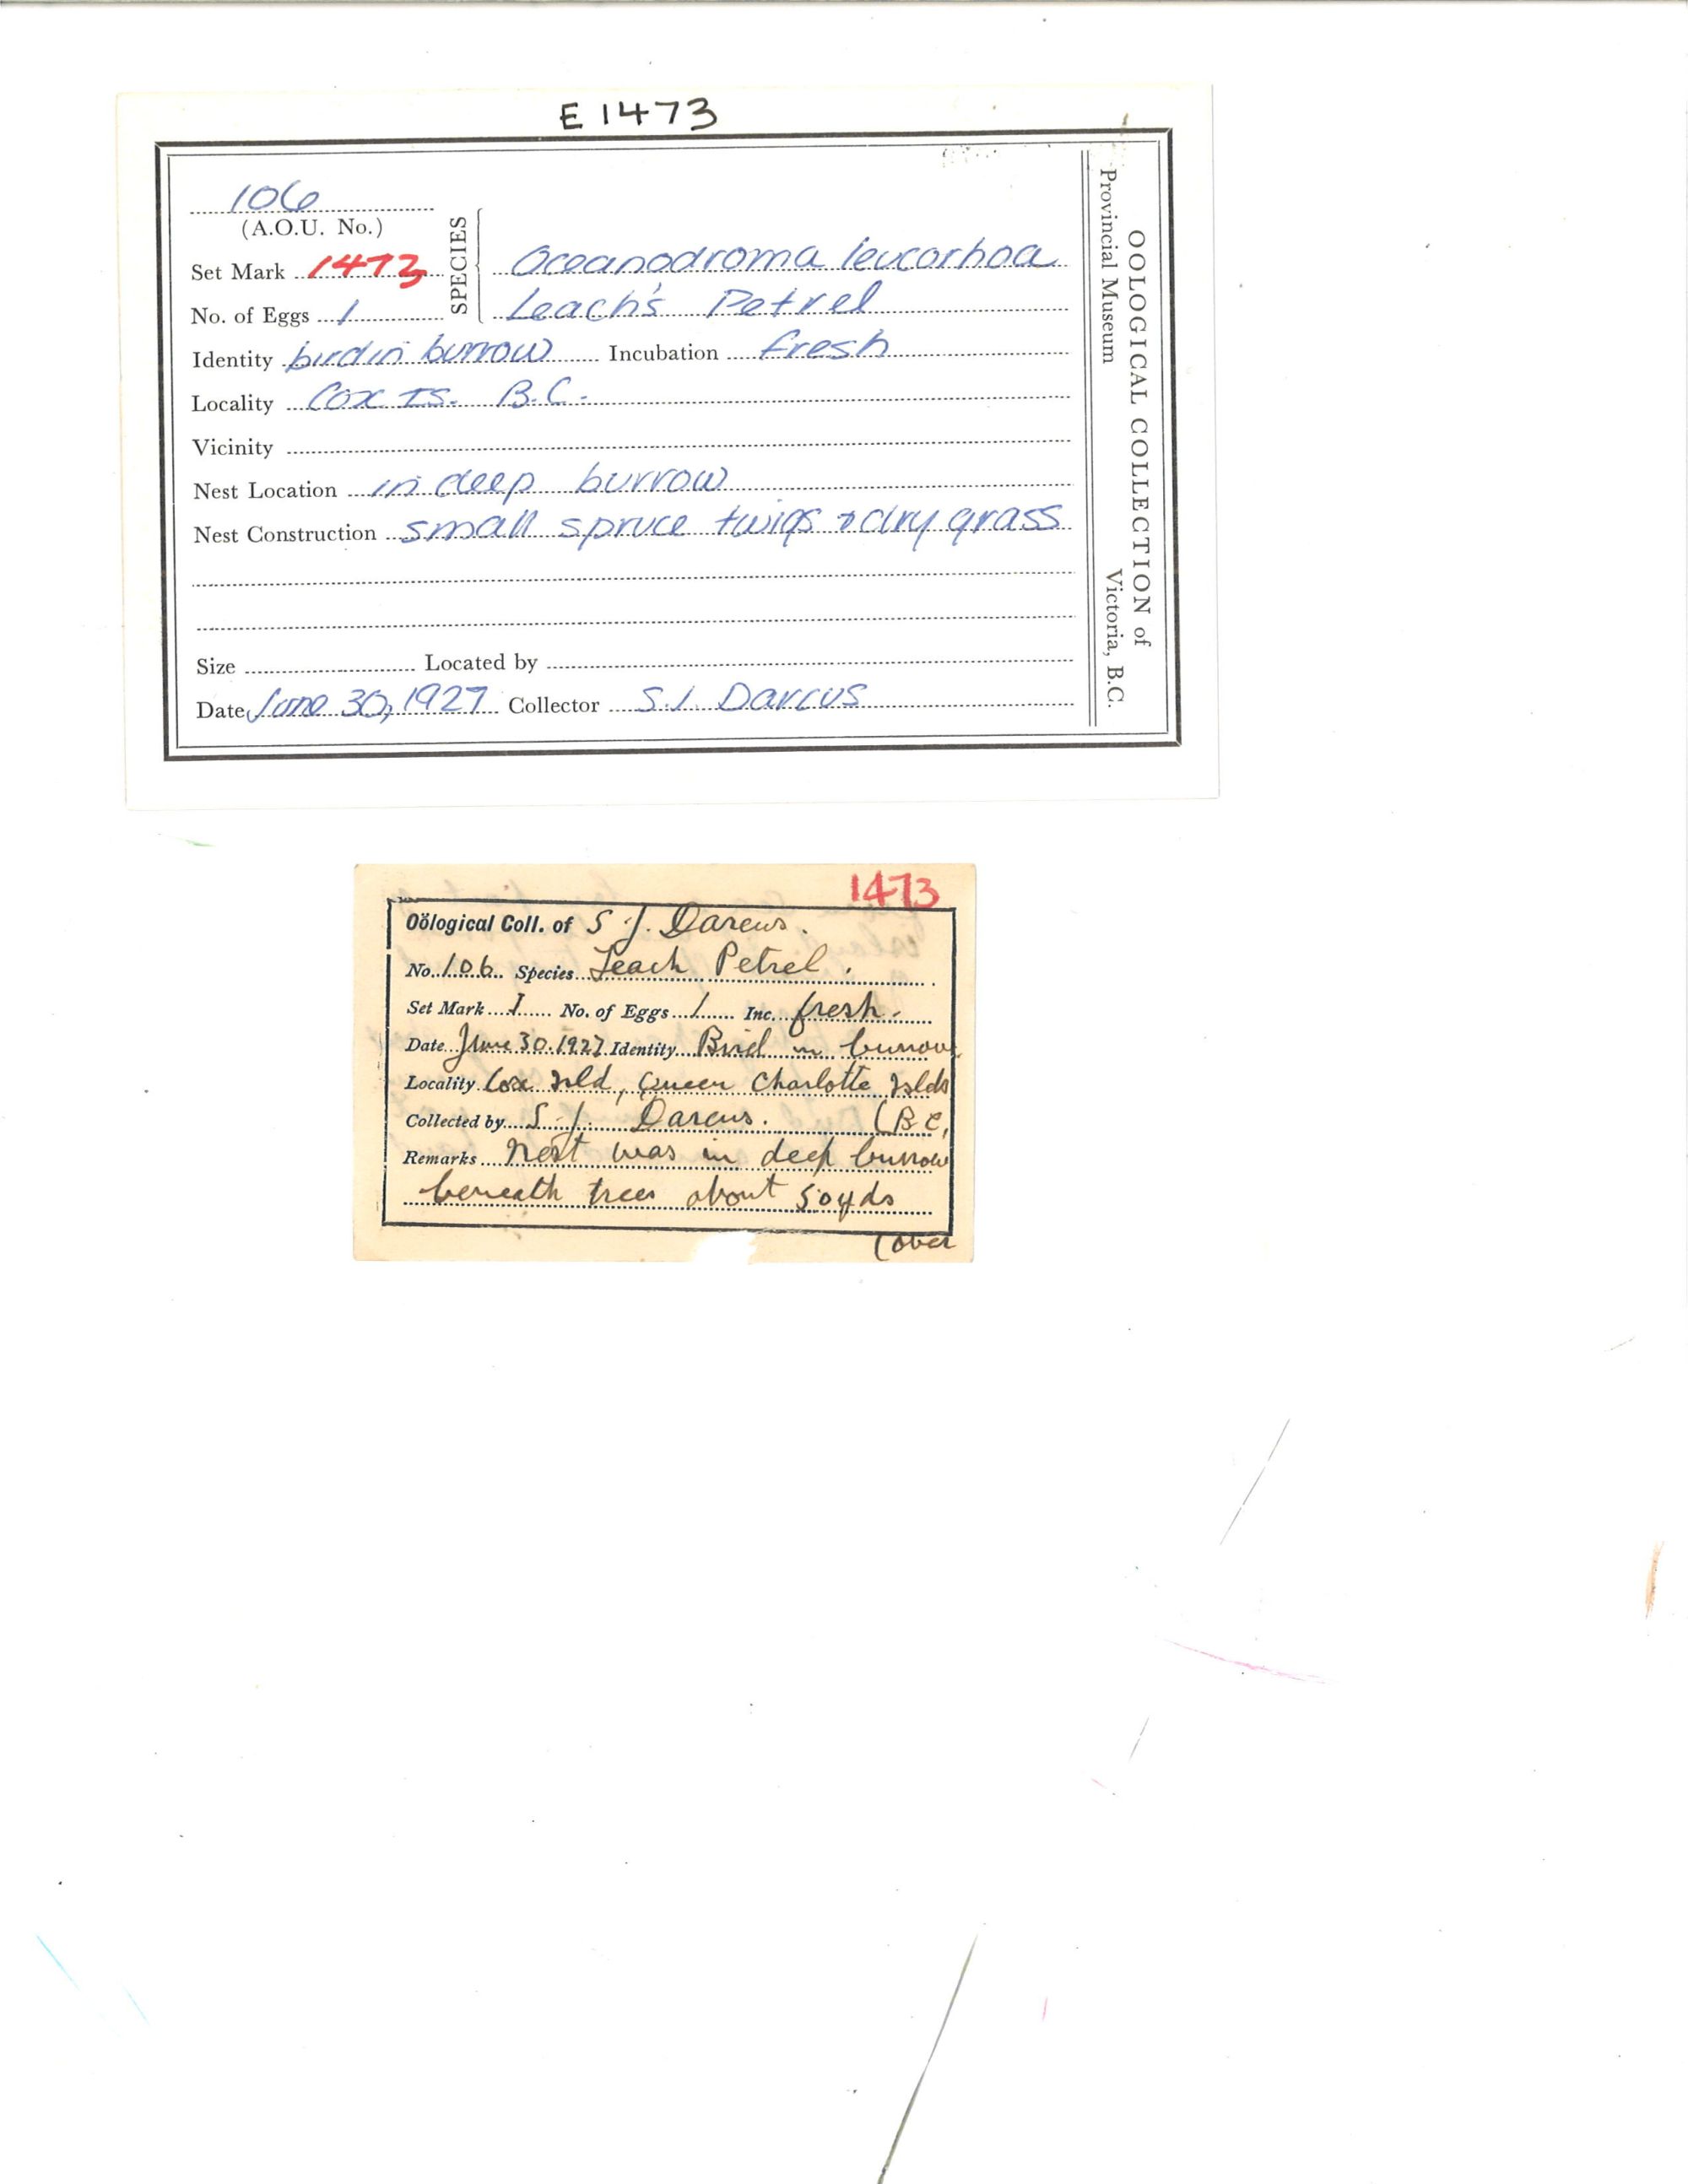 E 1473
106
(A.O.U. No.)
Set Mark 1473
No. of Eggs 1
SPECIES
Oceanodroma leucorhoa
Leach's Petrel
Identity bird in burrow Incubation fresh
Locality Cox Is. B.C.
Vicinity
Nest Location in deep burrow
Nest Construction small spruce twigs & dry grass
Size Located by
Date June 30, 1927 Collector S.J. Darcus
OOLOGICAL COLLECTION of
Provincial Museum Victoria, B.C.
1473
Oölogical Coll. of S. J. Darcus.
No. 106 Species Leach Petrel.
Set Mark I No. of Eggs 1 Inc. fresh.
Date June 30.1927 Identity Bird in burrow
Locality Cox Isld, Queen Charlotte Islds
Collected by S. J. Darcus. (B C,
Remarks Nest was in deep burrow
beneath trees about 50 yds
(over